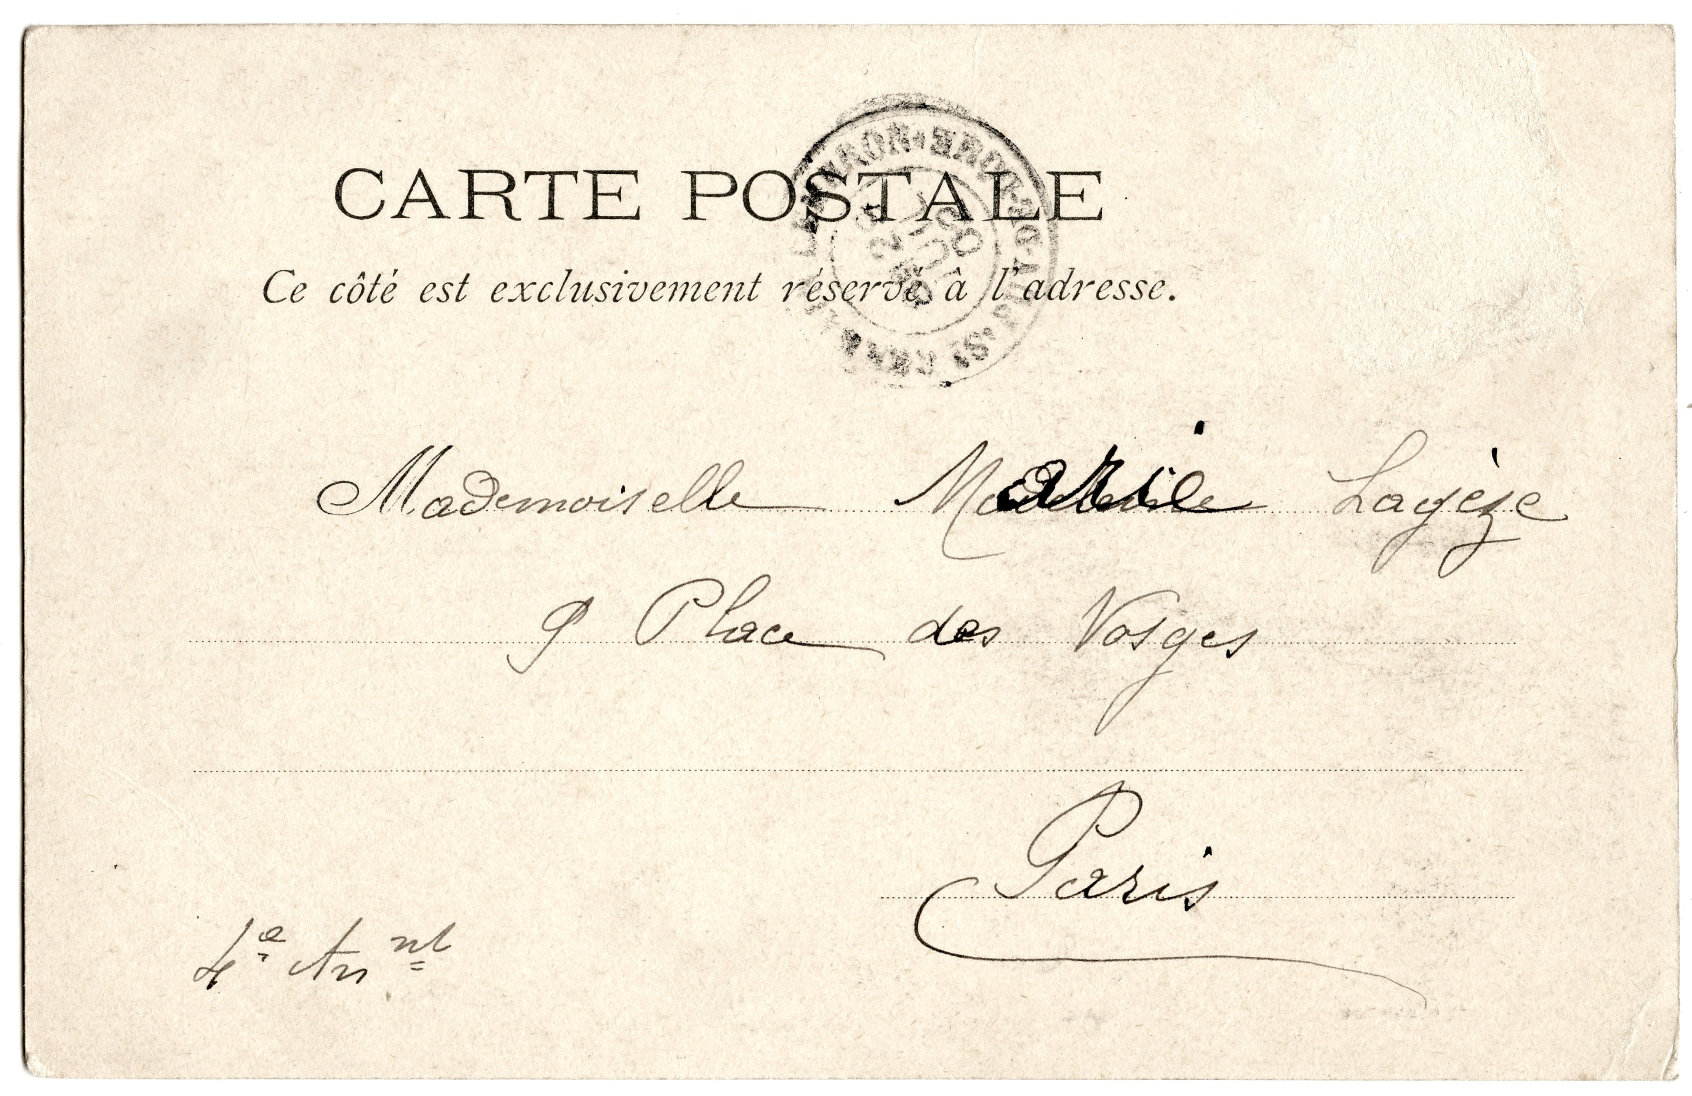 CARTE POSTALE
Ce côté est exclusivement réservé à l'adresse.
Mademoiselle Marie Lagèze
9 Place des Vosges
Paris
4e Arrnt